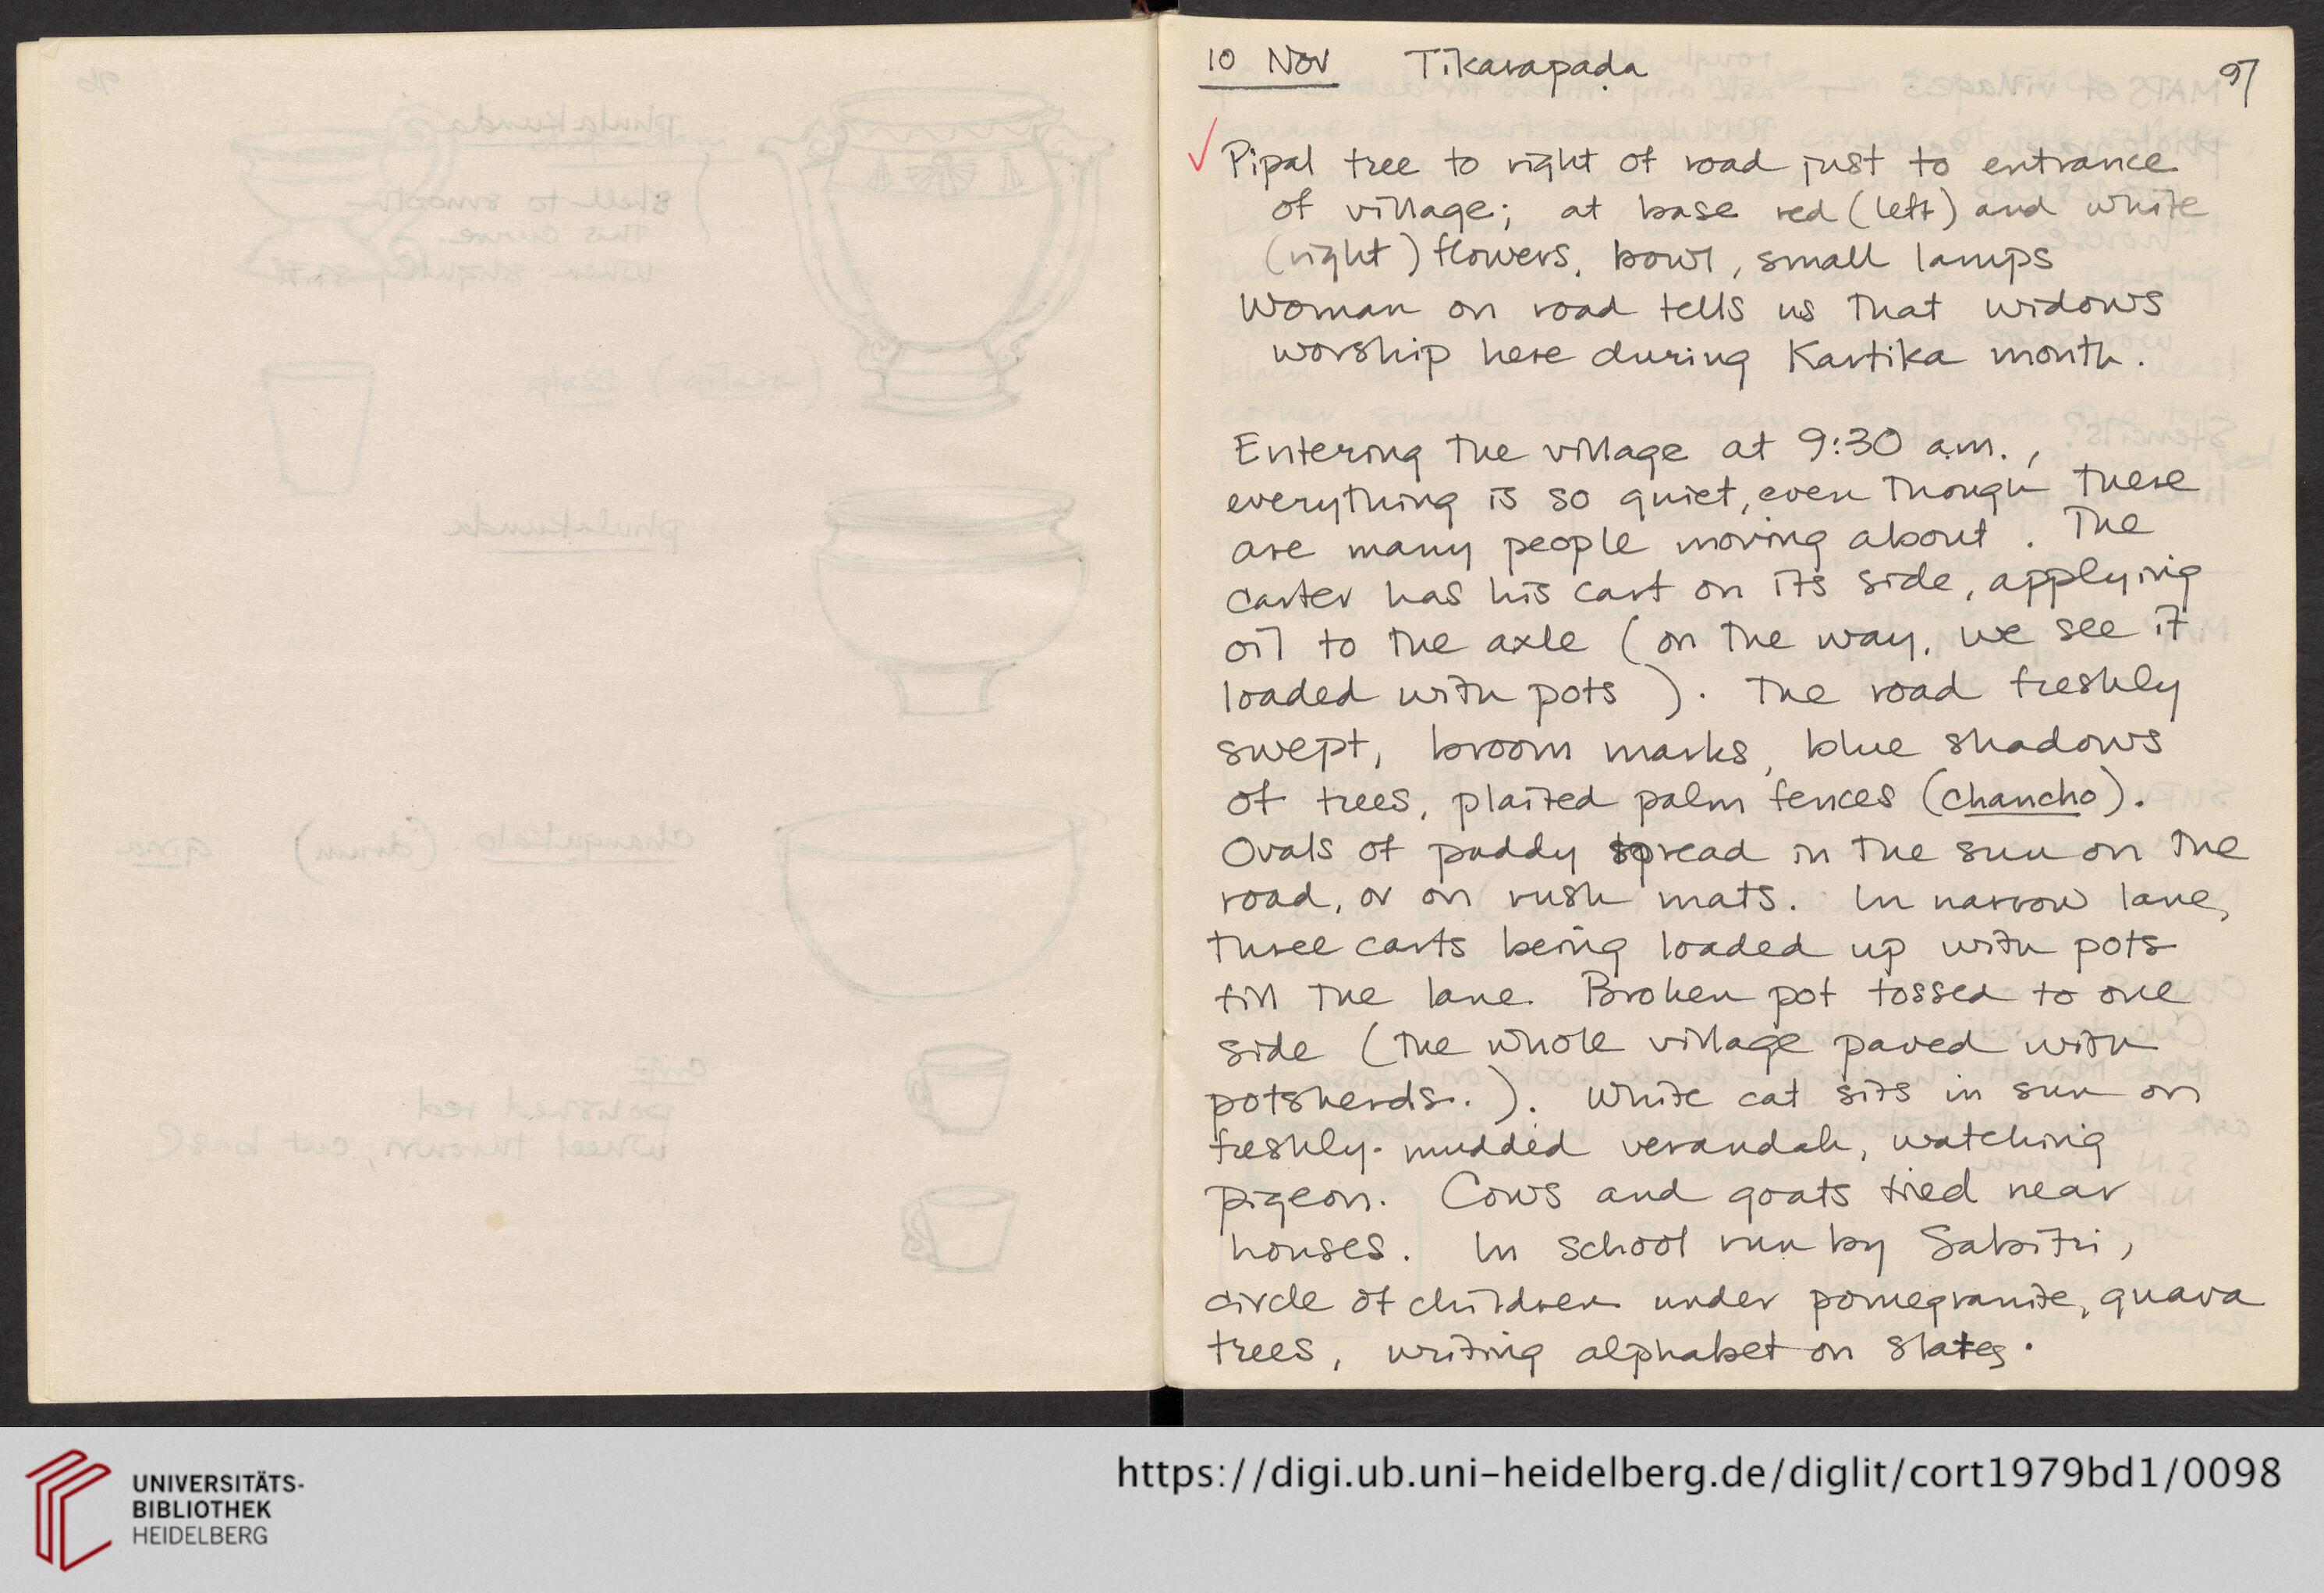 10 Nov Tikarapaḍa
97
✓ Pipal tree to right of road just to entrance
of village; at base red (left) and white
(right) flowers, bowl, small lamps
Woman on road tells us that widows
worship here during Kartika month.
Entering the village at 9:30 a.m.,
everything is so quiet, even though there
are many people moving about. The
carter has his cart on its side, applying
oil to the axle (on the way, we see it
loaded with pots). The road freshly
swept, broom marks, blue shadows
of trees, plaited palm fences (chancho).
Ovals of paddy spread in the sun on the
road, or on rush mats. In narrow lane,
three carts being loaded up with pots
fill the lane. Broken pot tossed to one
side (the whole village paved with
potsherds.). White cat sits in sun on
freshly-mudded verandah, watching
pigeon. Cows and goats tied near
houses. In school run by Sabitri,
circle of children under pomegranite, guava
trees, writing alphabet on slates.
96
phulakunda
shell to smooth
this curve
when slightly soft
phulakunda
changuhalo (drum)
cup
polished red
wheel thrown, cut base
UNIVERSITÄTS-
BIBLIOTHEK
HEIDELBERG
https://digi.ub.uni-heidelberg.de/diglit/cort1979bd1/0098